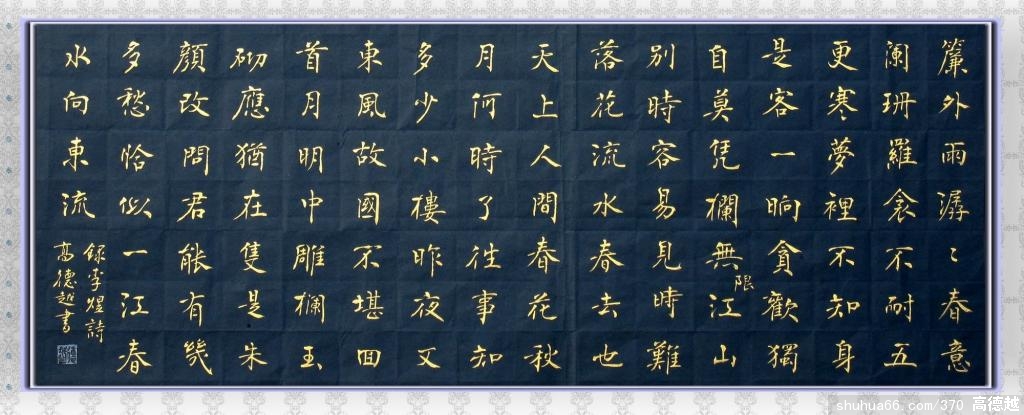 簾外雨潺〻春意
阑珊羅衾不耐五
更寒夢裡不知身
是客一晌貪歡獨
自莫凭欄無限江山
别時容易見時難
落花流水春去也
天上人間春花秋
月何時了往事知
多少小樓昨夜又
東風故國不堪回
首月明中雕欄玉
砌應猶在隻是朱
顔改問君能有幾
多愁恰似一江春
水向東流
録李煜詩
高德越書
shuhua66.com/370 高德越